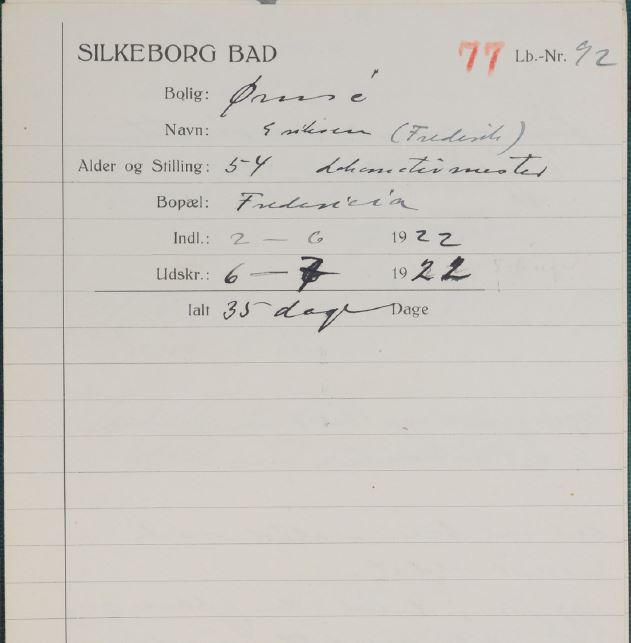 SILKEBORG BAD 77 Lb.-Nr. 92
Bolig: Ørnsø
Navn: Eriksen (Frederik)
Alder og Stilling: 54 Lokomotivmester
Bopæl: Fredericia
Indl.: 2 — 6 1922
Udskr.: 6 — 7 1922
Ialt 35 dage Dage